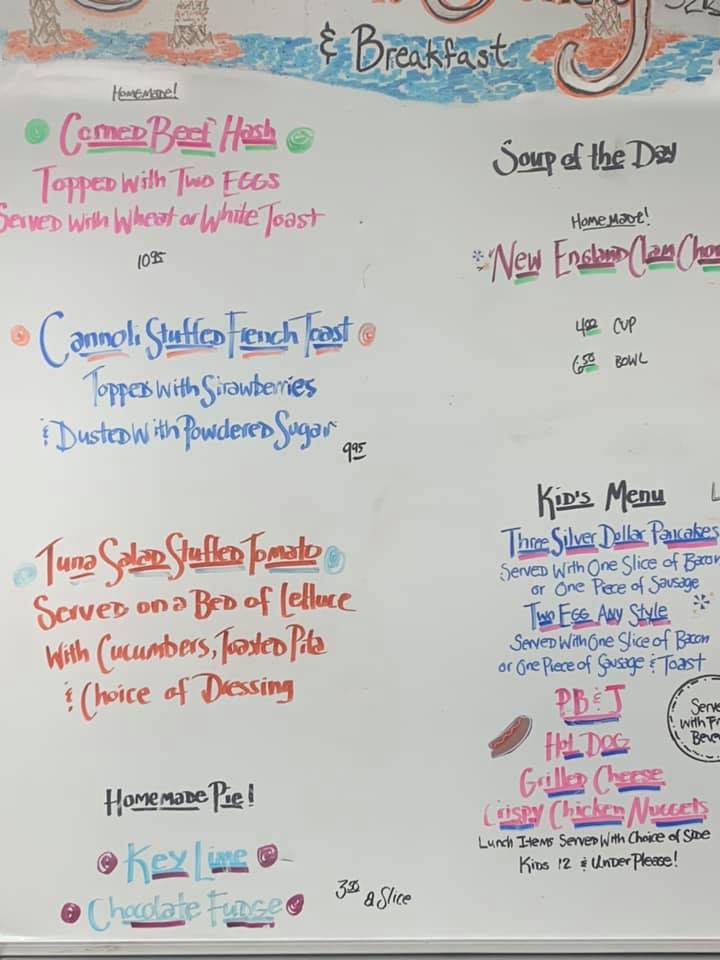 & Breakfast
Homemade!
Corned Beef Hash
Topped With Two Eggs
Served With Wheat or White Toast
10.95
Cannoli Stuffed French Toast
Topped With Strawberries
& Dusted With Powdered Sugar
9.95
Tuna Salad Stuffed Tomato
Served on a Bed of Lettuce
With Cucumbers, Toasted Pita
& Choice of Dressing
Homemade Pie!
Key Lime
Chocolate Fudge
3.50 a Slice
Soup of the Day
Homemade!
New England Clam Chow
4.00 Cup
6.50 Bowl
Kid's Menu
Three Silver Dollar Pancakes
Served With One Slice of Bacon
or One Piece of Sausage
Two Egg Any Style
Served With One Slice of Bacon
or One Piece of Sausage & Toast
PB & J
Hot Dog
Grilled Cheese
Crispy Chicken Nuggets
Serve
With Fr
Beve
Lunch Items Served With Choice of Side
Kids 12 & Under Please!